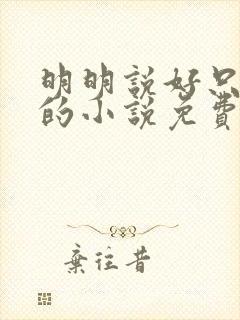 明明說好只
的小說免費
棄往昔